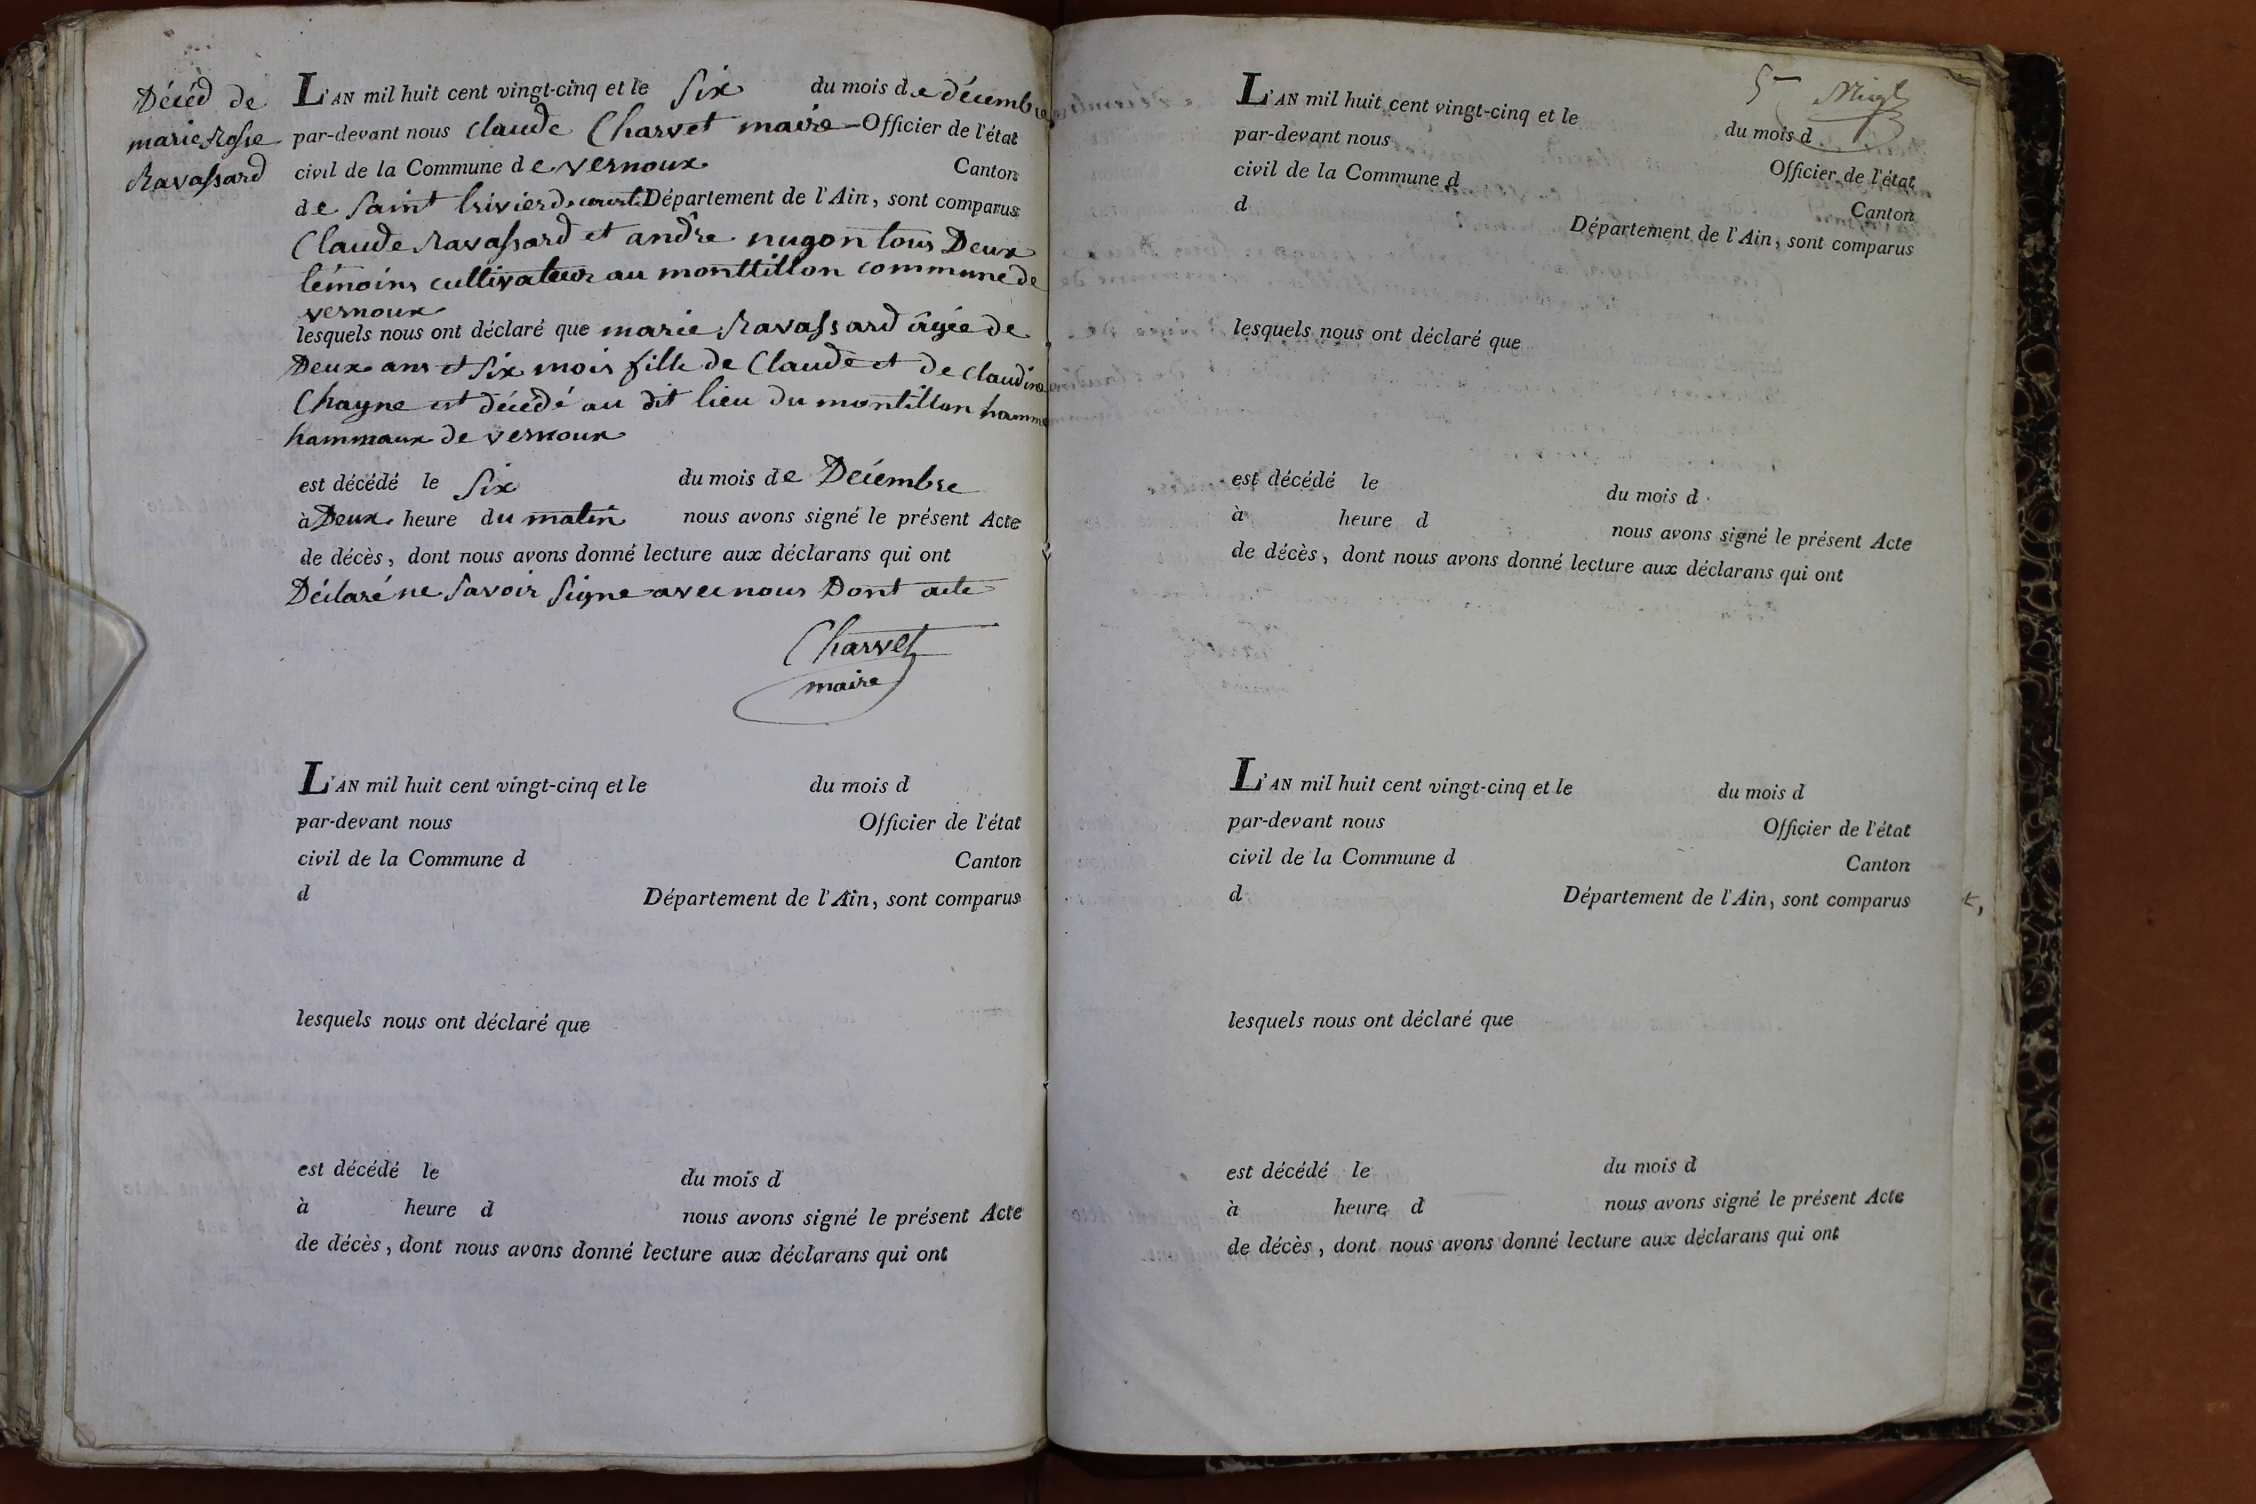 Décéd de
marie Rose
Ravassard
L'AN mil huit cent vingt-cinq et le Six du mois de décembre
par-devant nous claude Charvet maire Officier de l'état
civil de la Commune de vernoux Canton
de Saint trivier de courtes Département de l'Ain, sont comparus
Claude Ravassard et andre nugon tous Deux
témoins cultivateur au monttillon commune de
vernoux
lesquels nous ont déclaré que marie Ravassard âgée de
Deux ans et Six mois fille de Claude et de claudine
Chayne est décédé au dit lieu du montillon hamm
hammaux de vernoux
est décédé le Six du mois de Décembre
à Deux heure du matin nous avons signé le présent Acte
de décès, dont nous avons donné lecture aux déclarans qui ont
Déclaré ne Savoir Signe avec nous Dont acte
Charvet
maire
L'AN mil huit cent vingt-cinq et le du mois d
par-devant nous Officier de l'état
civil de la Commune d Canton
d Département de l'Ain, sont comparus
lesquels nous ont déclaré que
est décédé le du mois d
à heure d nous avons signé le présent Acte
de décès, dont nous avons donné lecture aux déclarans qui ont
5
L'AN mil huit cent vingt-cinq et le du mois d
par-devant nous Officier de l'état
civil de la Commune d Canton
d Département de l'Ain, sont comparus
lesquels nous ont déclaré que
est décédé le du mois d
à heure d nous avons signé le présent Acte
de décès, dont nous avons donné lecture aux déclarans qui ont
L'AN mil huit cent vingt-cinq et le du mois d
par-devant nous Officier de l'état
civil de la Commune d Canton
d Département de l'Ain, sont comparus
lesquels nous ont déclaré que
est décédé le du mois d
à heure d nous avons signé le présent Acte
de décès, dont nous avons donné lecture aux déclarans qui ont